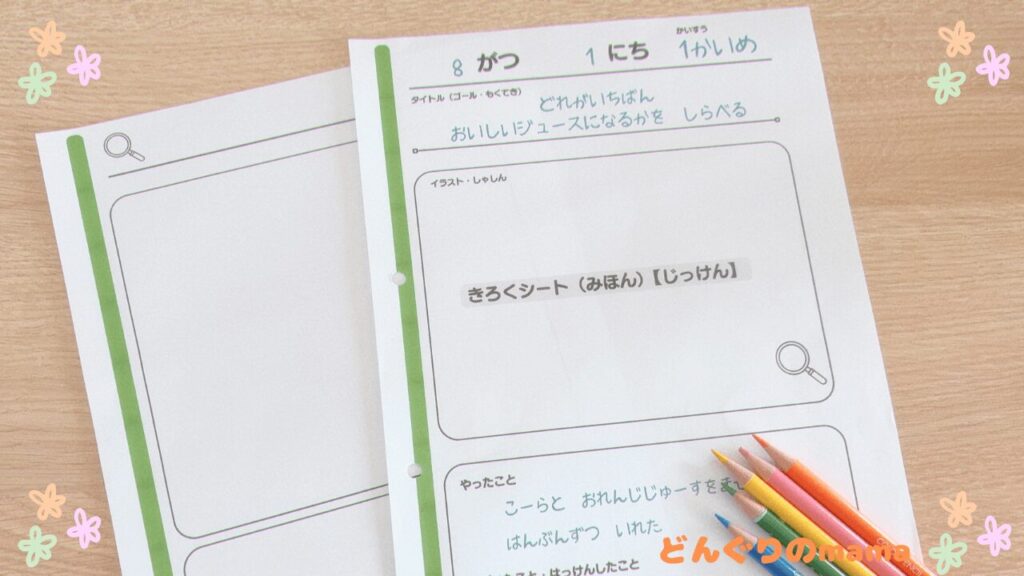 かいすう
8 がつ 1 にち 1かいめ
タイトル（ゴール・もくてき）
どれがいちばん
おいしいジュースになるかを しらべる
イラスト・しゃしん
きろくシート（みほん）【じっけん】
やったこと
こーらと おれんじじゅーすを
はんぶんずつ いれた
こと・はっけんしたこと
どんぐりのmama